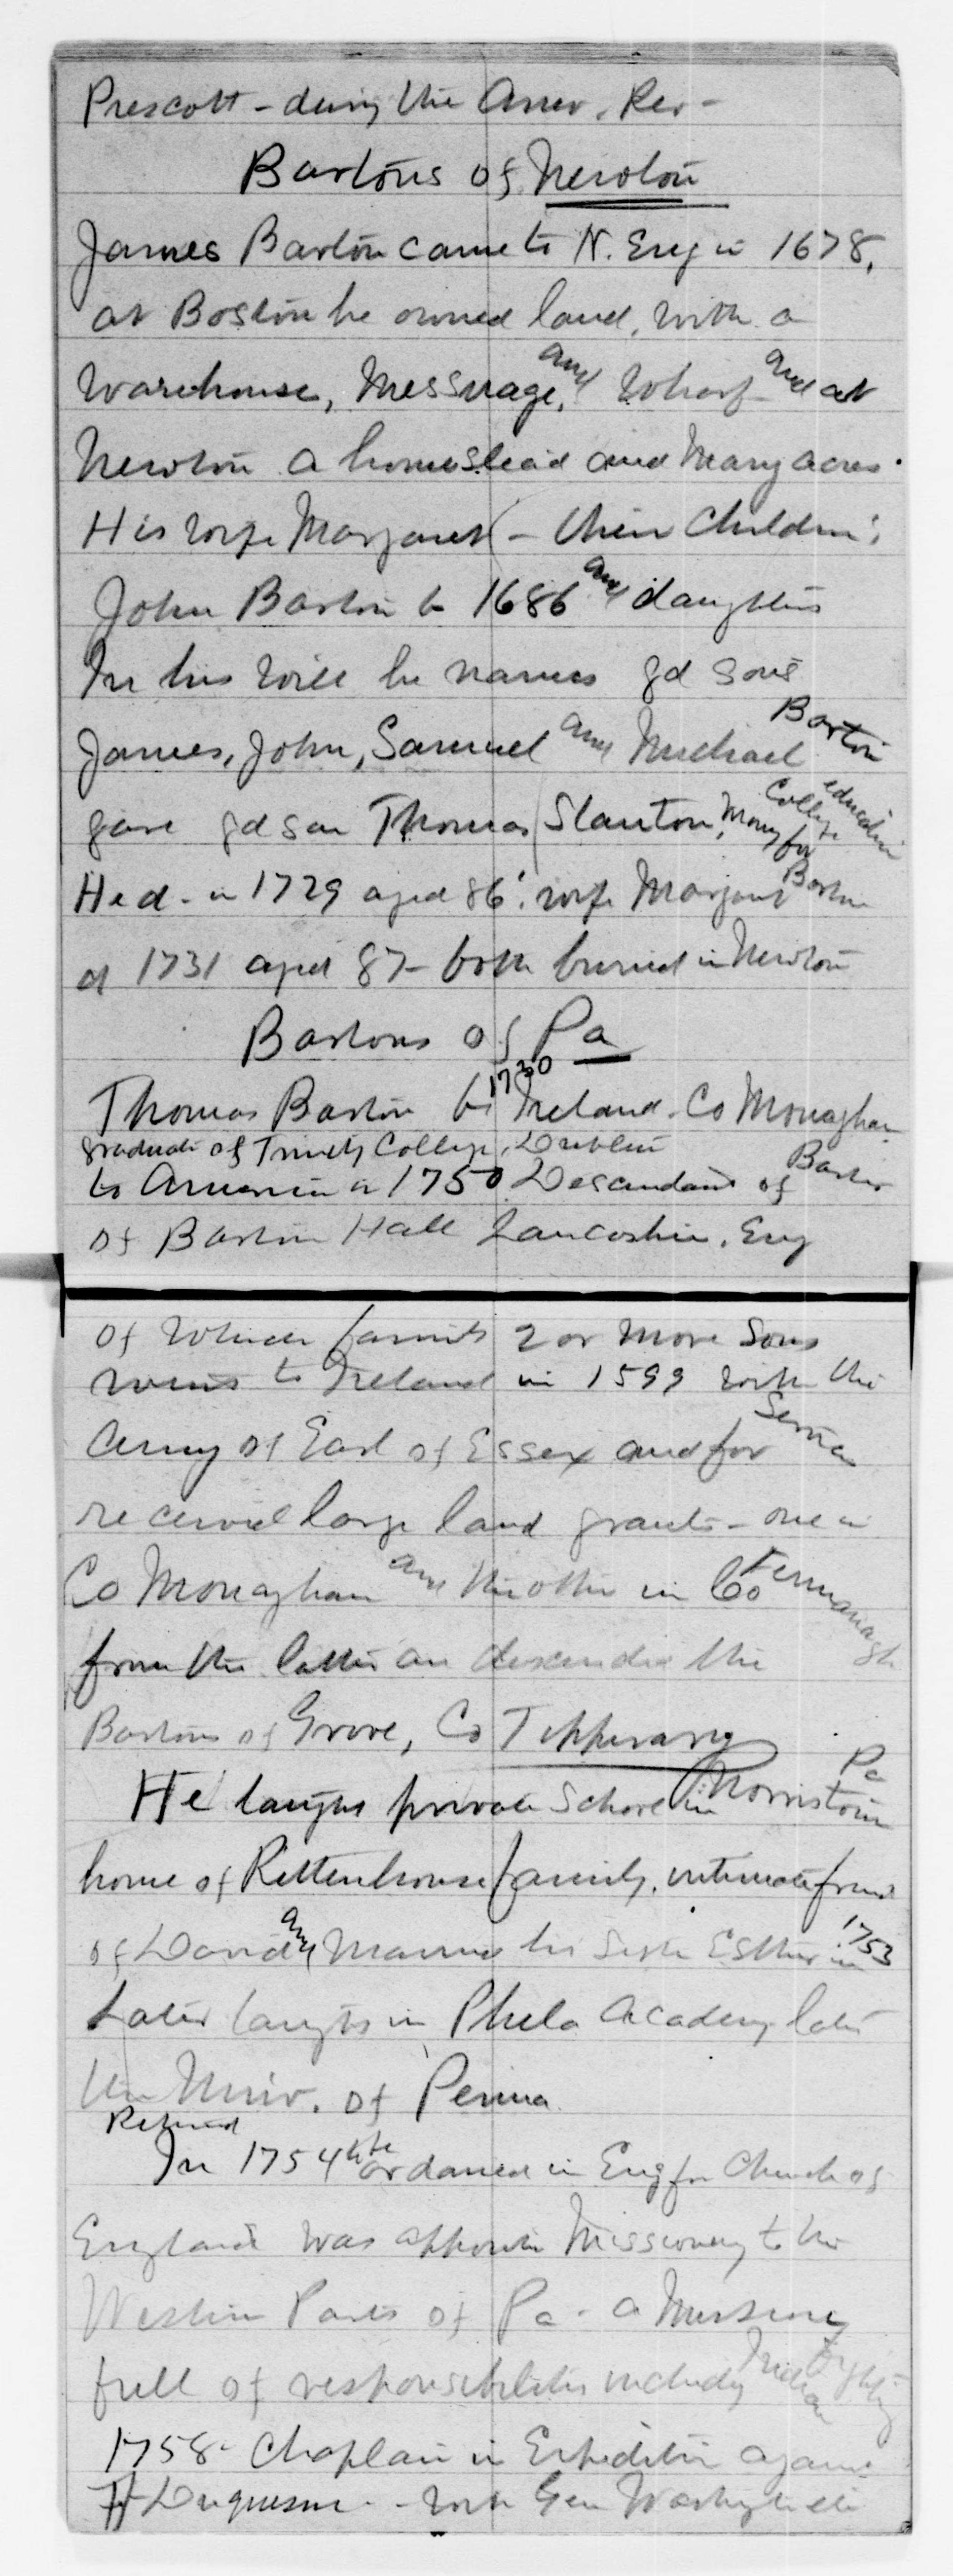 Prescott - during the Amer. Rev -
Bartons of Newton
James Barton came to N. Eng in 1678,
at Boston he owned land, with a
warehouse, messuage, and wharf and at
Newton a homestead and many acres.
His wife Margaret - their children:
John Barton b 1686 and daughters
In his will he names gd sons
James, John, Samuel and Michael Barton
gave gd son Thomas Stanton, money for College education
He d - in 1729 aged 86: wife Margaret Barton
d 1731 aged 87 - both buried in Newton
Bartons of Pa
Thomas Barton b 1730 Ireland - Co Monaghan
graduate of Trinity College, Dublin
to America in 1750. Descendant of Barton
of Barton Hall Lancashire. Eng
of which family 2 or more sons
went to Ireland in 1599 with the
Army of Earl of Essex and for service
received large land grants - one in
Co Monaghan and the other in Co Fermanagh
from the latter are descended the
Bartons of Grove, Co Tipperary
He taught private school in Norristown Pa
home of Rittenhouse family, intimate friend
of David and married his sister Esther in 1753
Later taught in Phila Academy later
the Univ. of Penna
Returned
In 1754 to be ordained in Eng for Church of
England was appointed Missionary to the
Western Parts of Pa - a Missionary
full of responsibilities including Indian fighting
1758 - Chaplain in Expedition against
Ft Duquesne - with Gen Washington